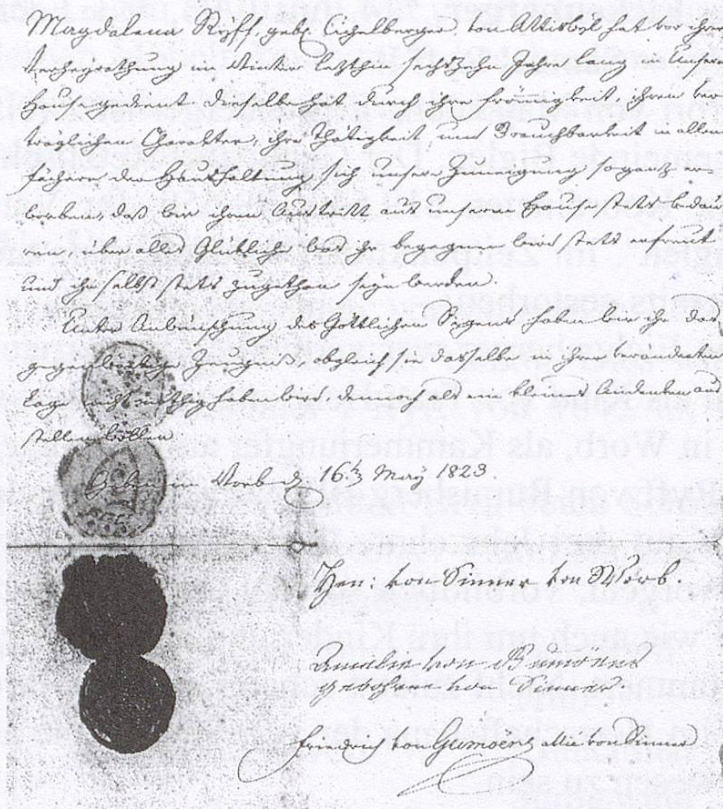 Magdalena Ryff, geb. Eichelberger, von Attiswyl hat vor ihrer
Verheyrathung im Winter letzthin sechszehn Jahre lang in unserm
Hause gedient. Dieselbe hat durch ihre Frömigkeit, ihren ver
träglichen Charakter, ihre Thätigkeit, und Brauchbarkeit in allen
fächern der Haushaltung sich unsere Zuneigung so ganz er-
worben, daß wir ihren Austritt aus unserm Hause stets bedau
ren, über alles Glükliche was ihr begegnen wird stets erfreut
und ihr selbst stets zugethan seyn werden.
Unter Anwünschung des Göttlichen Segens haben wir ihr das
gegenwärtige Zeugniß, obgleich sie dasselbe in ihrer veränderten
Lage nicht nöthig haben wird, dennoch als ein kleines Andenken aus
stellen wollen.
Geben in Worb d. 16.t May 1823
von Sinner von Worb.
Amalie von Gumöens
gebohrne von Sinner
Friedrich von Gumoens allié von Sinner
in Worb, als Kammerjungfer